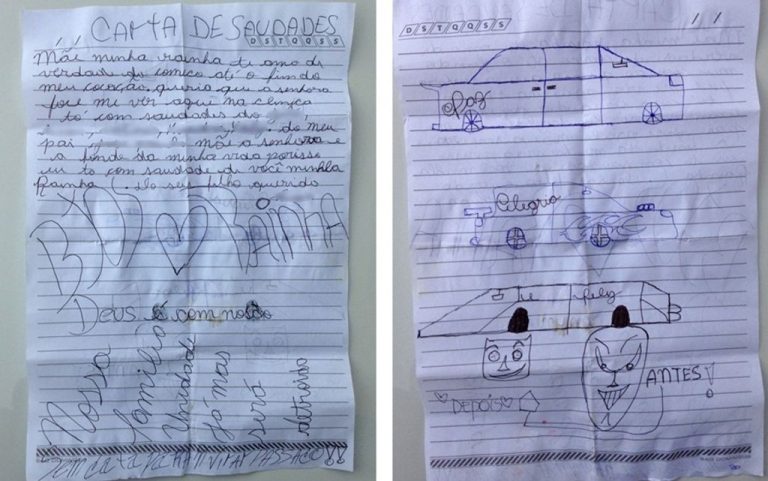 CARTA DE SAUDADES
D S T Q Q S S
Mãe minha rainha te amo de
verdade do começo até o fim do
meu coração queria que a senhora
fose me ver aqui na
to com saudades do
do meu
pai mãe a senhora e
a da minha vida porisso
eu to com saudade de você minhla
Rainha do seu filho querido
RAINHA
Deus é com nosco
Nossa
família
Unidade
Já mas
será
detroida
D S T Q Q S S
Paz
Alegria
fely
ANTES!
Depois